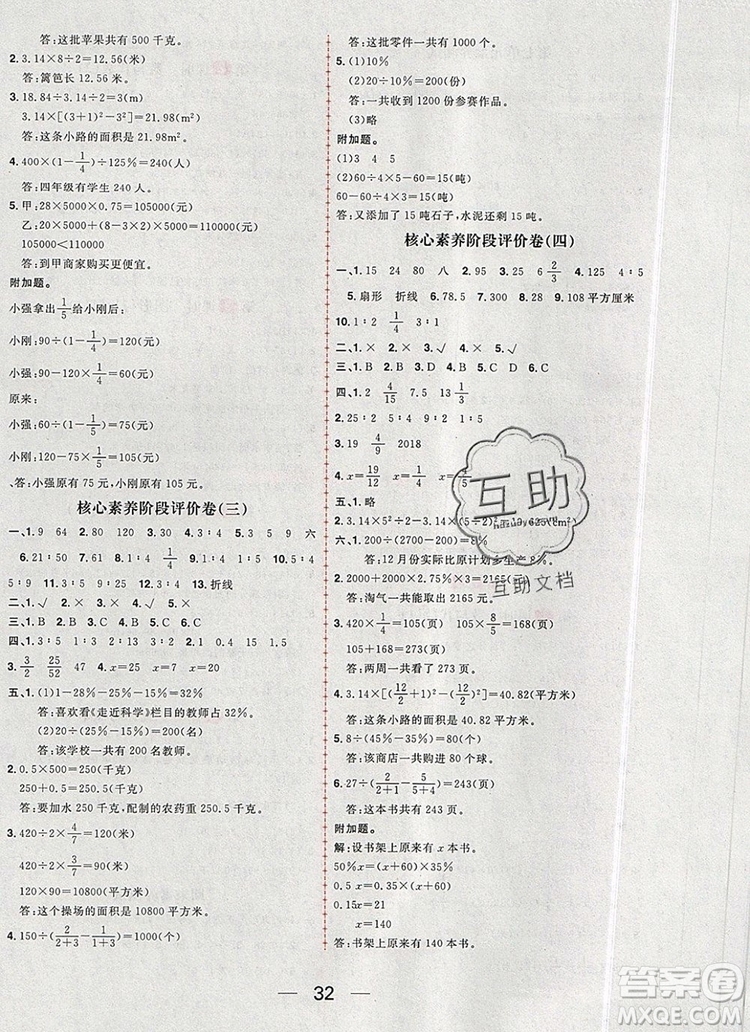 答:这批苹果共有 500 千克。
2. 3.14×8÷2=12.56(米)
答:篱笆长 12.56 米。
3. 18.84÷3.14÷2=3(m)
3.14×[(3+1)²-3²]=21.98(m²)
答:这条小路的面积是 21.98m²。
4. 400×(1-1/4)÷125%=240(人)
答:四年级有学生 240 人。
5. 甲:28×5000×0.75=105000(元)
乙:20×5000+(8-3×2)×5000=110000(元)
105000<110000
答:到甲商家购买更便宜。
附加题。
小强拿出1/5给小刚后:
小刚:90÷(1-1/4)=120(元)
小强:90×2-120=60(元)
原来:
小强:60÷(1-1/5)=75(元)
小刚:90×2-75=105(元)
答:小强原有 75 元,小刚原有 105 元。
核心素养阶段评价卷(三)
一、1. 9 64 2. 80 3. 5.4 4. 3 5 9 5. 9 六
6. 21:50 7. 13:15 8. 30 9. 30 10. 150
11. 60 12. 40 1/4 13. 折线
二、1. √ 2. × 3. × 4. √ 5. ×
三、1. B 2. B 3. A 4. C 5. B
四、1. 3:5 1:3 2:13 2. 0.1 0.4 1.5
3. 3/2 25/52 4. x=1 x=7 x=20
五、1. (1)1-28%-25%-15%=32%
答:喜欢看《走近科学》栏目的教师占 32%。
(2)20÷(25%-15%)=200(名)
答:该学校一共有 200 名教师。
2. 0.5×500=250(千克)
250+0.5=250.5(千克)
答:要加水 250 千克,配制的农药重 250.5 千克。
3. 420÷2×4/7=120(米)
420÷2×3/7=90(米)
120×90=10800(平方米)
答:这个操场的面积是 10800 平方米。
4. 150÷(2/(2+3)-1/(1+3))=1000(个)
答:这批零件一共有 1000 个。
5. (1)10%
(2)20÷10%=200(份)
答:一共收到 1200 份参赛作品。
(3)略
附加题。
(1)3 4 5
(2)60÷4×5=75(吨)
60-60÷4×3=15(吨)
答:又添加了 15 吨石子,水泥还剩 15 吨。
核心素养阶段评价卷(四)
一、1. 15 24 80 八 2. 95 3. 25 6 2/3 4. 4:5
5. 扇形 折线 6. 78.5 7. 200 8. 28 9. 108 平方厘米
10. 1:2 1/4 3:1
二、1. × 2. × 3. √ 4. × 5. √
三、1. B 2. B 3. C 4. B 5. D
四、1. 2 4/15 7.5 13 1/3
2. 25:2 5:4 9:2 1:5
3. 19 4/9 2018
4. x=19/12 x=4/3 x=15
五、1. 略
2. 3.14×
六、1. (2700-2500)÷2500=8%
答:12 月份实际比原计划多生产 8%。
2. 2000+2000×2.75%×3=2165(元)
答:淘气一共能取出 2165 元。
3. 420×1/4=105(页) 105×8/5=168(页)
105+168=273(页)
答:两周一共看了 273 页。
4. 3.14×[(12/2+1)²-(12/2)²]=40.82(平方米)
答:这条小路的面积是 40.82 平方米。
5. 8÷(45%-35%)=80(个)
答:该商店一共购进 80 个球。
6. 27÷(2/(2+1)-5/(5+4))=243(页)
答:这本书共有 243 页。
附加题。
解:设书架上原来有 x 本书。
50%x=(x+60)×35%
0.5x=(x+60)×0.35
0.15x=21
x=140
答:书架上原来有 140 本书。
32
互助
互助文档
答案圈
MXQE.COM